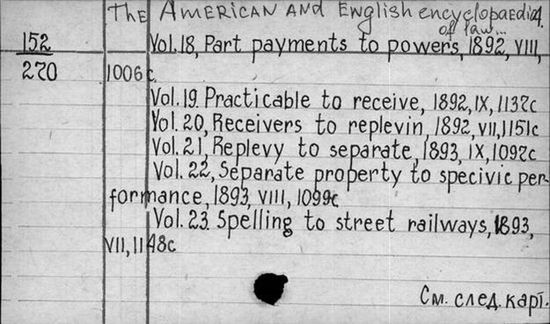 The American and English encyclopaedia
of law...
152 Vol. 18, Part payments to powers, 1892, VIII,
270 1006 c.
Vol. 19. Practicable to receive, 1892, IX, 1137c
Vol. 20, Receivers to replevin, 1892, VII, 1151c
Vol. 21, Replevy to separate, 1893, IX, 1097c
Vol. 22, Separate property to specivic per-
formance, 1893, VIII, 1099c
Vol. 23. Spelling to street railways, 1893,
VII, 1148c
См. след. карт.